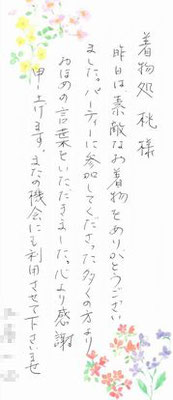 着物処 桃 様
昨日は素敵なお着物をありがとうござい
ました。パーティーに参加してくださった多くの方より
おほめの言葉をいただきました。心より感謝
申し上げます。またの機会にも利用させて下さいませ